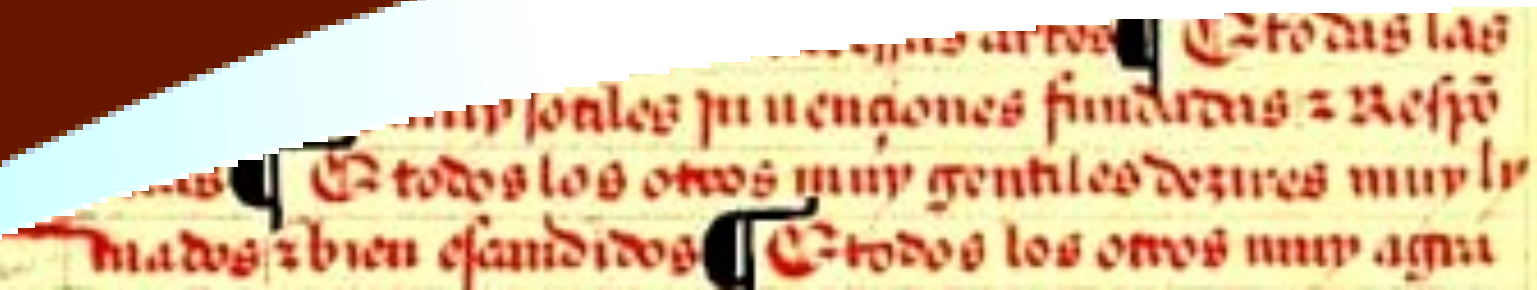 artes ¶ E todas las
muy sotiles jnuençiones fundadas z Respõ
¶ E todos los otros muy gentiles dezires muy ly
mados z bien escandidos ¶ E todos los otros muy agra